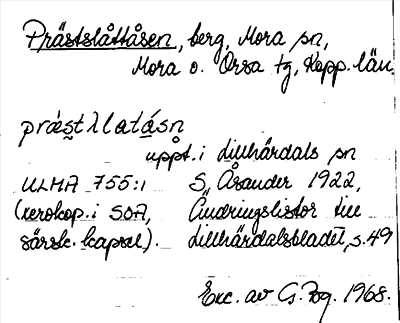 Prästslåttåsen, berg, Mora sn,
Mora o. Orsa tg, Kopp. län.
prästlatåsn
uppt. i Lillhärdals sn
ULMA 755:1 S. Åsander 1922,
(xerokop. i SOA, Ändringslistor till
särsk. kapsel). Lillhärdalsbladet, s. 49
Exc. av G. Bg. 1968.